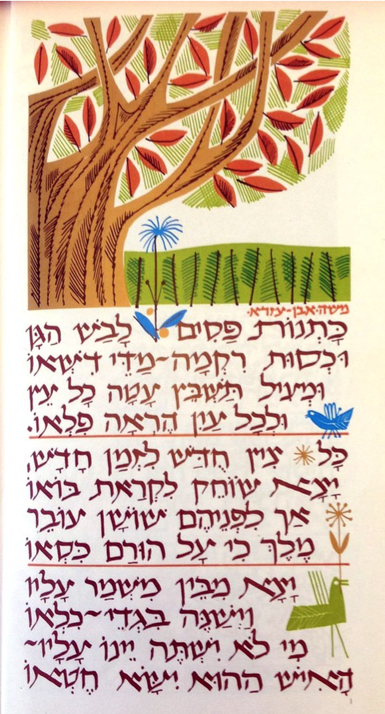 משה·אבן-עזרא·
כָּתְנוֹת פַּסִּים לָבַשׁ הַגָּן
וּכְסוּת רִקְמָה-מַדֵּי דִשְׁאוֹ
וּמְעִיל תַּשְׁבֵּץ עָטָה כָל עֵץ
וּלְכָל עַיִן הֶרְאָה פִלְאוֹ.
כָּל צִיץ חָדָשׁ לִזְמַן חֻדַּשׁ,
יָצָא שׂוֹחֵק לִקְרַאת בּוֹאוֹ
אַךְ לִפְנֵיהֶם שׁוֹשָׁן עוֹבֵר
מֶלֶךְ כִּי עָל הוּרַם כִּסְאוֹ
יָצָא מִבֵּין מִשְׁמַר עָלָיו
וַיְשַׁנֶּה בִּגְדֵי-כִלְאוֹ
מִי לֹא יִשְׁתֶּה יֵינוֹ עָלָיו-
הָאִישׁ הַהוּא יִשָּׂא חֶטְאוֹ